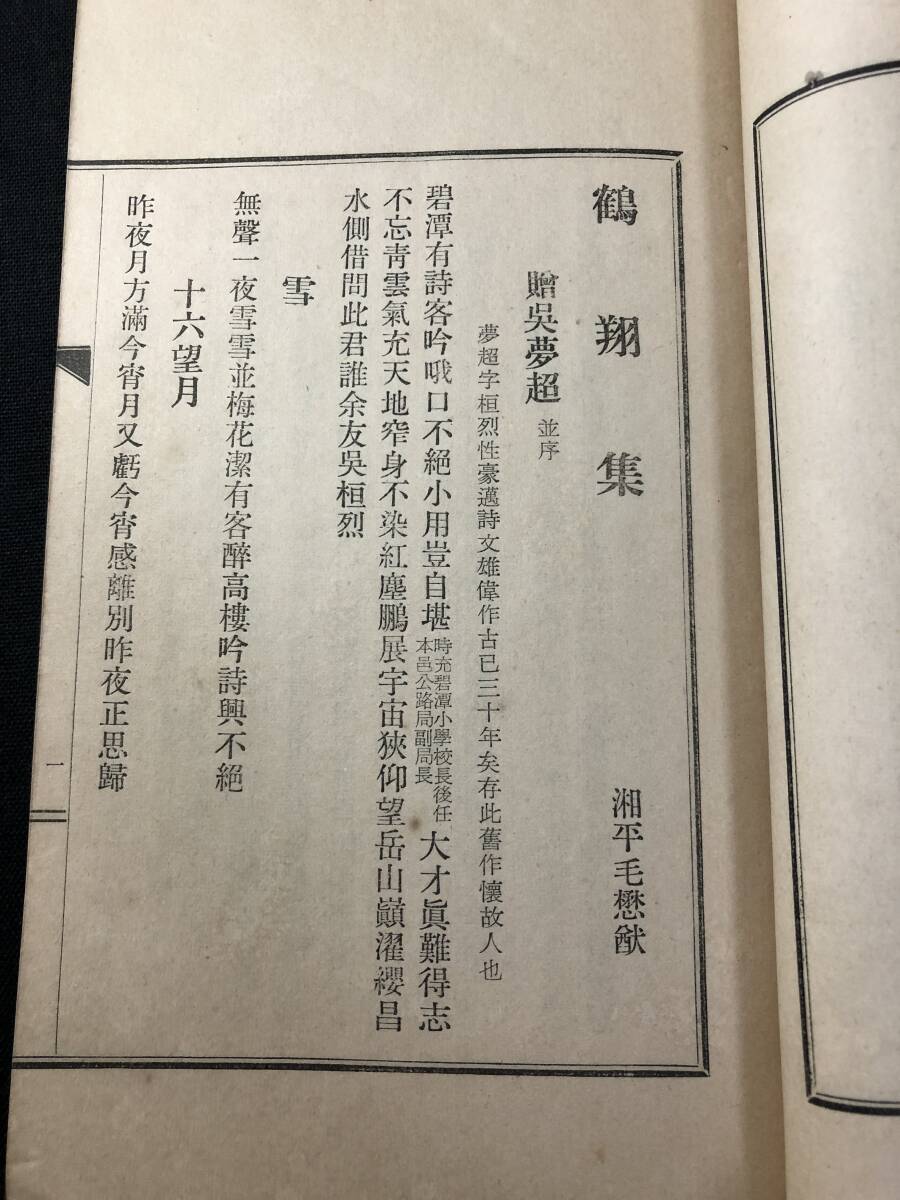 鶴翔集
湘平毛懋猷
贈吳夢超 並序
夢超字桓烈性豪邁詩文雄偉作古已三十年矣存此舊作懷故人也
碧潭有詩客吟哦口不絕小用豈自堪時充碧潭小學校長後任本邑公路局副局長大才眞難得志
不忘靑雲氣充天地窄身不染紅塵鵬展宇宙狹仰望岳山巔濯纓昌
水側借問此君誰余友吳桓烈
雪
無聲一夜雪雪並梅花潔有客醉高樓吟詩興不絕
十六望月
昨夜月方滿今宵月又虧今宵感離別昨夜正思歸
一